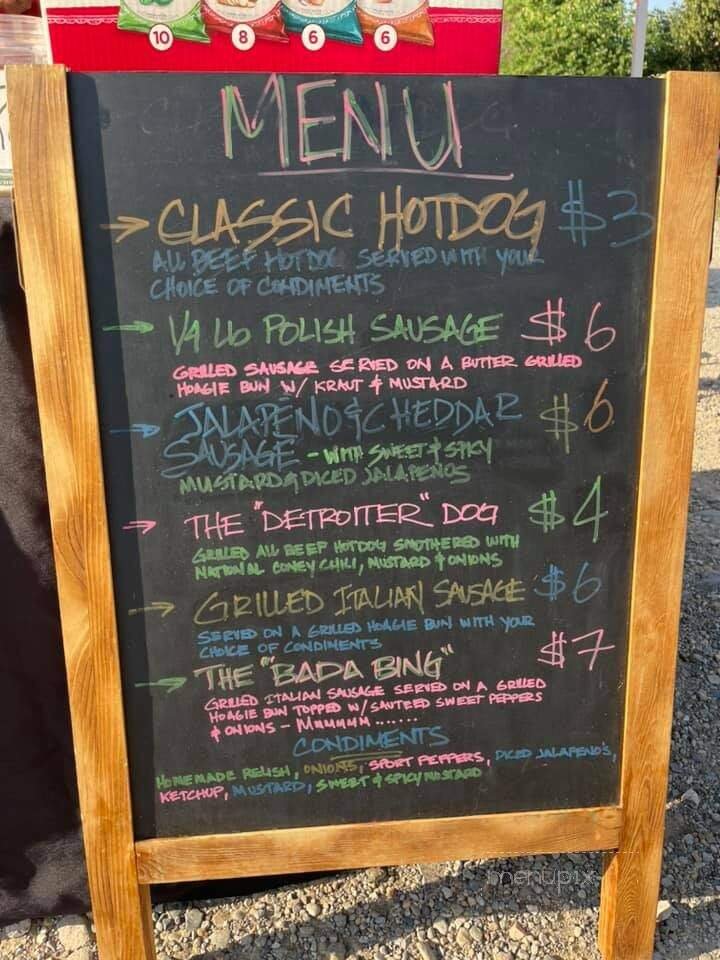 10 8 6 6
MENU
→ CLASSIC HOTDOG $3
ALL BEEF HOTDOG SERVED WITH YOUR
CHOICE OF CONDIMENTS
→ 1/4 Lb POLISH SAUSAGE $6
GRILLED SAUSAGE SERVED ON A BUTTER GRILLED
HOAGIE BUN W/ KRAUT & MUSTARD
→ JALAPEÑO & CHEDDAR $6
SAUSAGE - WITH SWEET & SPICY
MUSTARD & DICED JALAPEÑOS
→ THE "DETROITER" DOG $4
GRILLED ALL BEEF HOTDOG SMOTHERED WITH
NATIONAL CONEY CHILI, MUSTARD & ONIONS
→ GRILLED ITALIAN SAUSAGE $6
SERVED ON A GRILLED HOAGIE BUN WITH YOUR
CHOICE OF CONDIMENTS
→ THE "BADA BING" $7
GRILLED ITALIAN SAUSAGE SERVED ON A GRILLED
HOAGIE BUN TOPPED W/ SAUTEED SWEET PEPPERS
& ONIONS - MMMMMM .......
CONDIMENTS
HOMEMADE RELISH, ONIONS, SPORT PEPPERS, DICED JALAPENO'S,
KETCHUP, MUSTARD, SWEET & SPICY MUSTARD
menupix